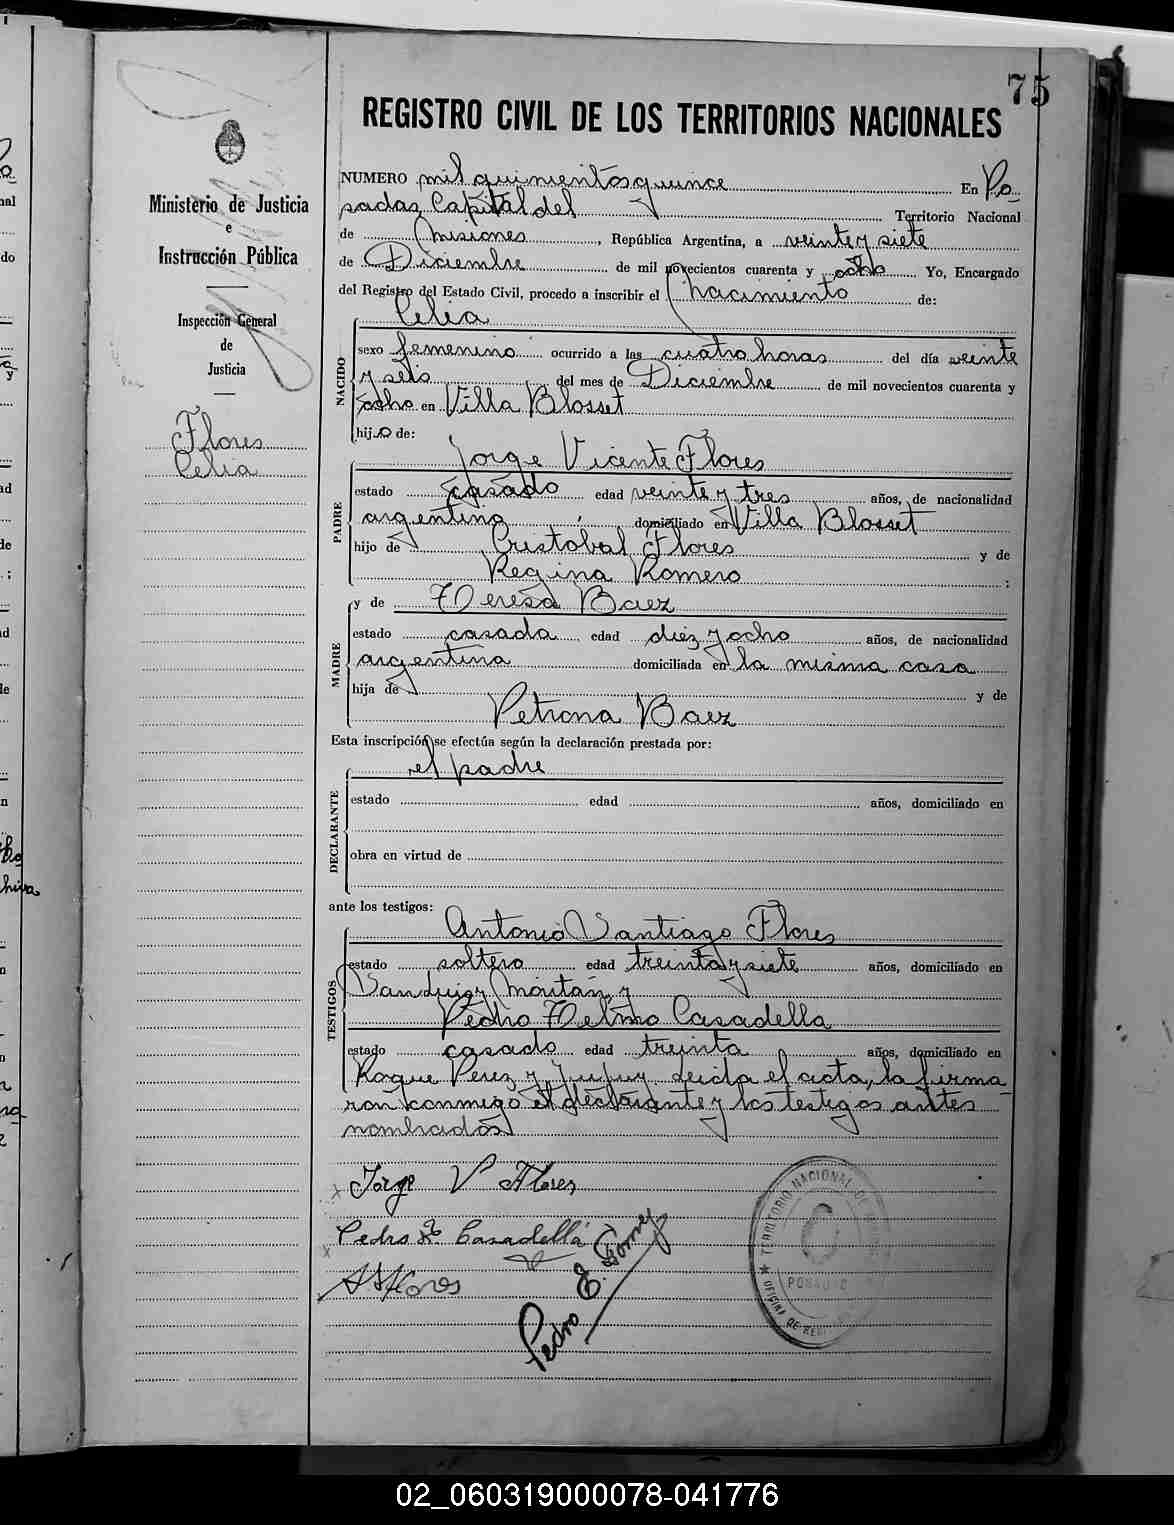 75
REGISTRO CIVIL DE LOS TERRITORIOS NACIONALES
Ministerio de Justicia
e
Instrucción Pública
Inspección General
de
Justicia
Flores
Celia
NUMERO mil quinientos quince En Po
sadas Capital del Territorio Nacional
de Misiones, República Argentina, a veinte y siete
de Diciembre de mil novecientos cuarenta y ocho Yo, Encargado
del Registro del Estado Civil, procedo a inscribir el nacimiento de:
Celia
NACIDO
sexo femenino ocurrido a las cuatro horas del día veinte
y seis del mes de Diciembre de mil novecientos cuarenta y
ocho en Villa Blosset
hija de:
Jorge Vicente Flores
PADRE
estado casado edad veinte y tres años, de nacionalidad
argentino domiciliado en Villa Blosset
hijo de Cristobal Flores y de
Regina Romero :
y de Teresa Baez
MADRE
estado casada edad diez y ocho años, de nacionalidad
argentina domiciliada en la misma casa
hija de y de
Petrona Baez
Esta inscripción se efectúa según la declaración prestada por:
el padre
DECLARANTE
estado edad años, domiciliado en
obra en virtud de
ante los testigos:
Antonio Santiago Flores
TESTIGOS
estado soltero edad treinta y siete años, domiciliado en
San Luis y
Pedro Telmo Casadella
estado casado edad treinta años, domiciliado en
Roque Perez y Jujuy leida el acta, la firma
ron conmigo el declarante y los testigos antes
nombrados
Jorge V Flores
Pedro T. Casadella
A S Flores
Pedro E. Gomez
TERRITORIO NACIONAL DE
POSADAS
OFICINA DE
02_060319000078-041776